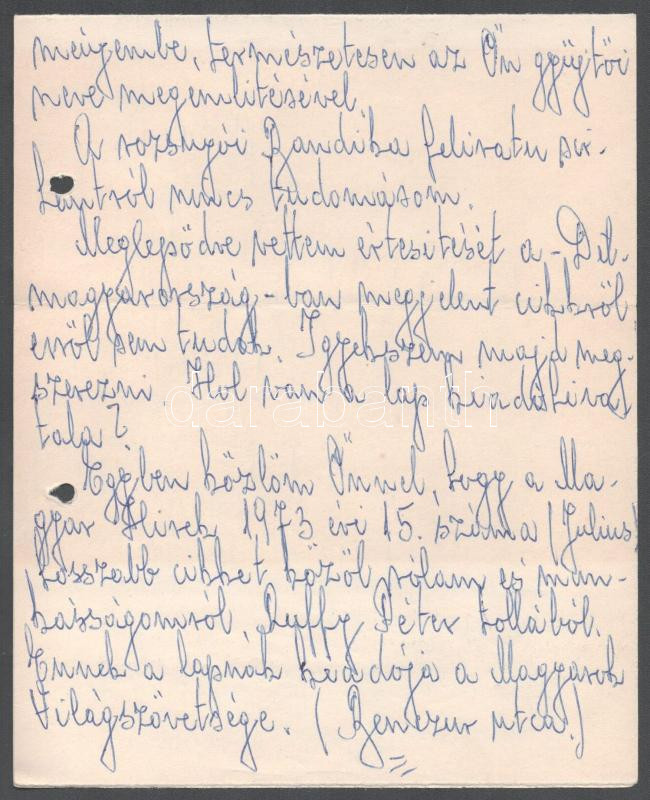 meiyembe, természetesen az Ön gyüjtői
neve megemlitésével.
A rozsnyói Bandiba feliratu sir-
lantról nincs tudomásom.
Meglepődve vettem értesitését a - Dél-
magyarország - ban megjelent cikkről
erről sem tudok. Igyekszem majd meg-
szerezni. Hol van a lap kiadóhiva-
tala?
Egyben közlöm Önnel, hogy a Ma-
gyar Hirek 1973 évi 15. száma (Julius)
hosszabb cikket közöl rólam és mun-
kásságomról, Ruffy Péter tollából.
Ennek a lapnak kiadója a Magyarok
Világszövetsége. (Benczur utca.)
darabanth